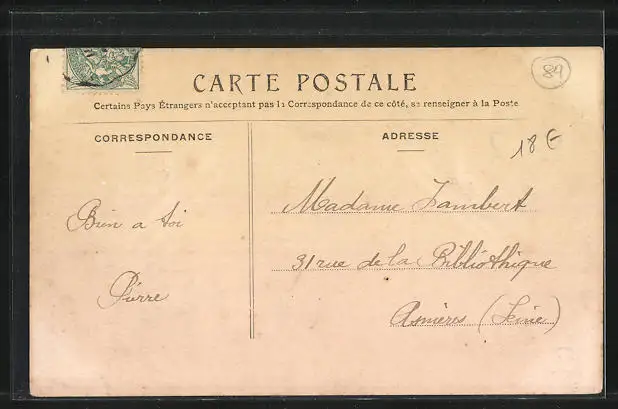 CARTE POSTALE
89
Certains Pays Étrangers n'acceptant pas la Correspondance de ce côté, se renseigner à la Poste
CORRESPONDANCE
ADRESSE
18 €
Madame Lambert
Bien a toi
31 rue de la Bibliothique
Pierre
Asnières (Seine)